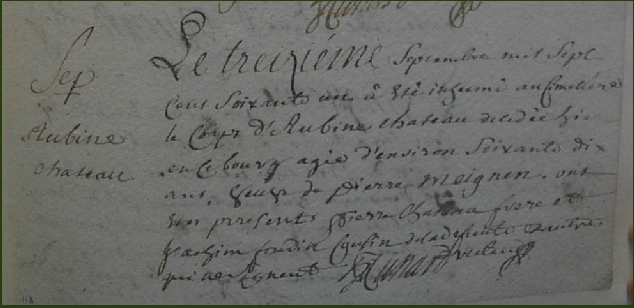 Sep
Aubine
chateau
Le treiziéme Septembre mil Sept
Cent Soixante un à eté inhumé au Cimetiere
le Corps d'Aubine chateau decedée hier
en ce bourg agée d'environ Soixante dix
ans, veuve de pierre meignen. ont
eté presents pierre Chateau frere et
Joachim cousin de la defunte & autres
qui ne Signent